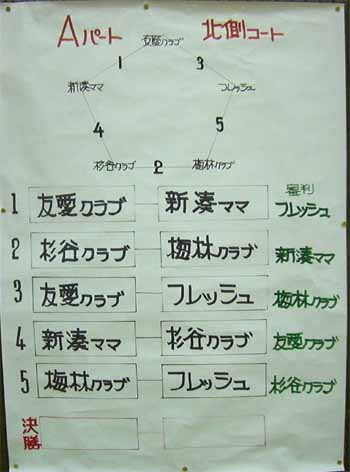 Aパート 北側コート
友愛クラブ
1 3
新湊ママ フレッシュ
4 5
杉谷クラブ 2 梅林クラブ
審判
1 友愛クラブ 新湊ママ フレッシュ
2 杉谷クラブ 梅林クラブ 新湊ママ
3 友愛クラブ フレッシュ 梅林クラブ
4 新湊ママ 杉谷クラブ 友愛クラブ
5 梅林クラブ フレッシュ 杉谷クラブ
決勝